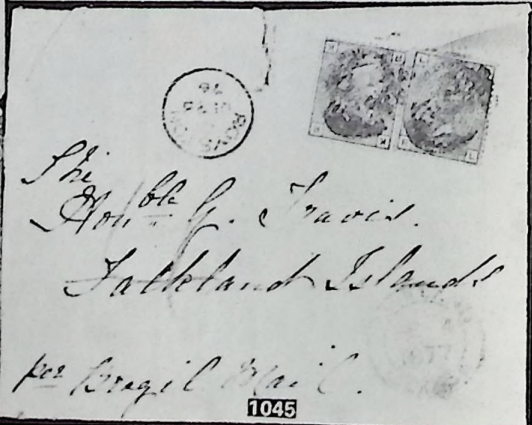 ROYSTON
76
The
Honble G. Travis.
Falkland Islands
per Brazil Mail.
1045